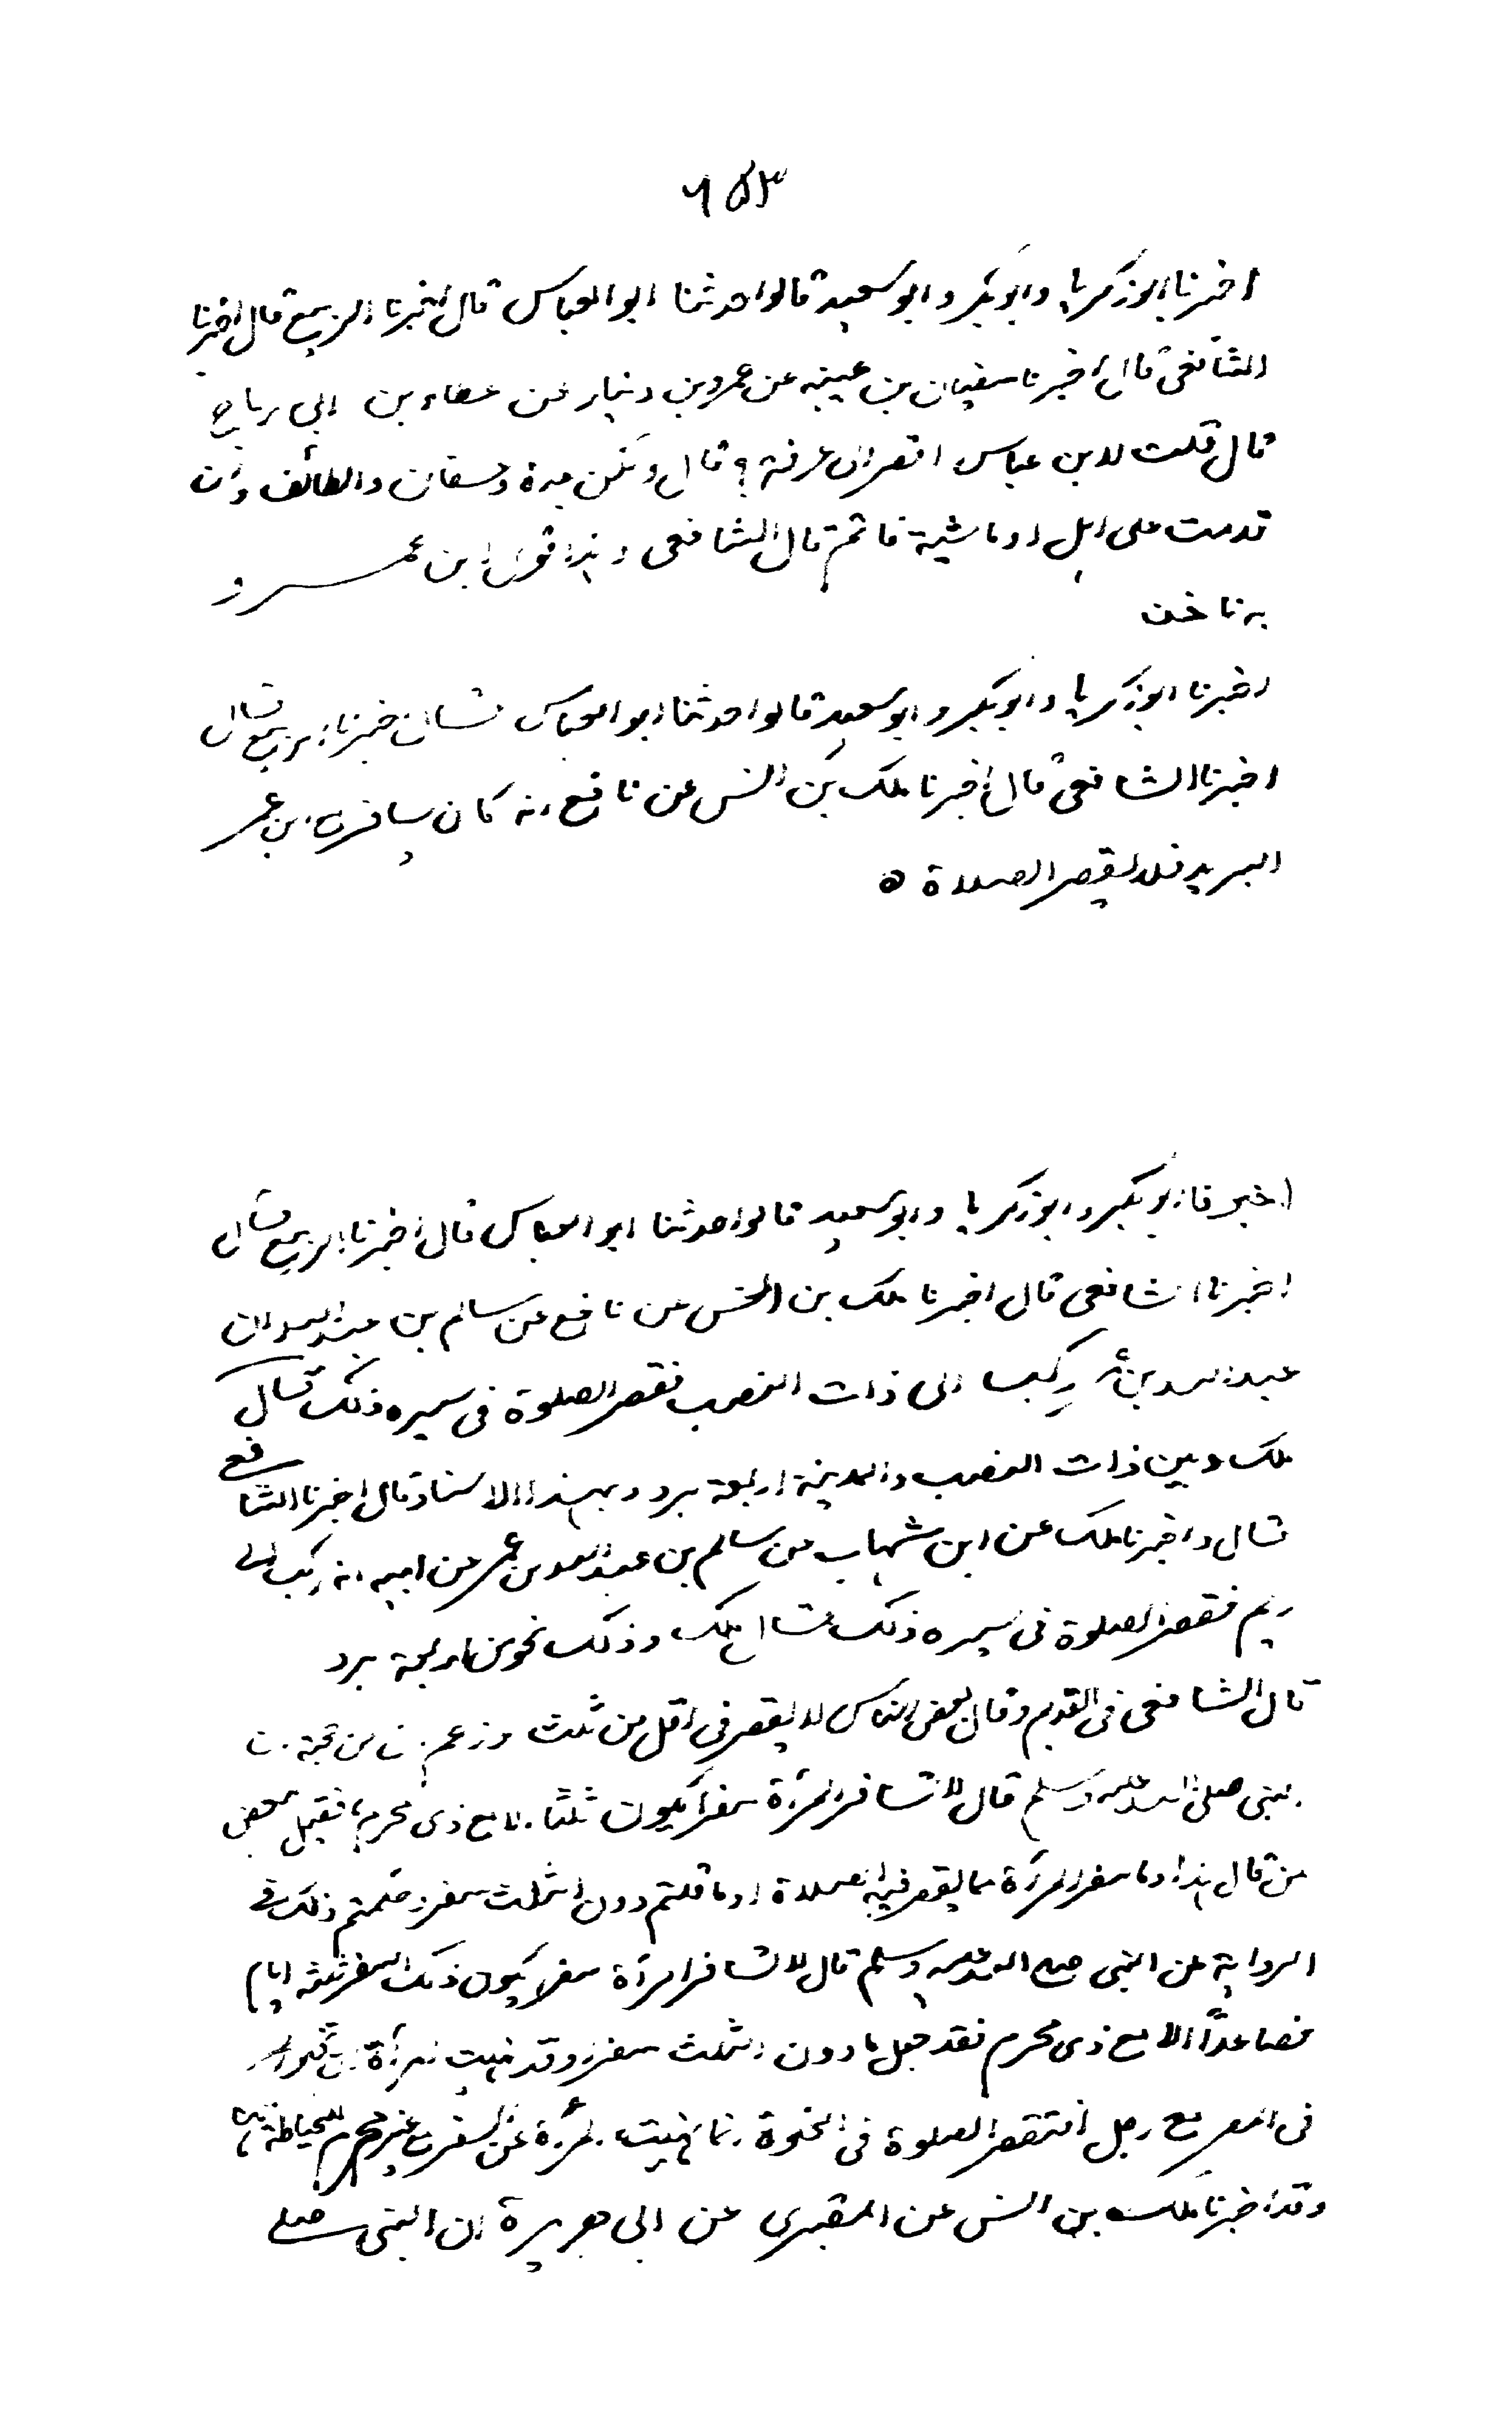 ٦٥٣
اخبرنا ابوزكريا وابوبكر وابوسعيد قالوا حدثنا ابوالعباس قال اخبرنا الربيع قال اخبرنا
الشافعى قال اخبرنا سفيان بن عيينه عن عمرو بن دينار عن عطاء بن ابى رباح
قال قلت لابن عباس اقصر الى عرفة ؟ قال ولكن جدة وعسفان والطائف وان
قدمت على اهل او ماشية فاتم قال الشافعى وهذا قول ابن عمر و
به ناخذ
اخبرنا ابوزكريا وابوبكر وابوسعيد قالوا حدثنا ابوالعباس قال اخبرنا الربيع قال
اخبرنا الشافعى قال اخبرنا ملك بن انس عن نافع انه كان يسافر مع ابن عمر
البريد فلا يقصر الصلاة ٥
اخبرنا ابوبكر وابوزكريا وابوسعيد قالوا حدثنا ابوالعباس قال اخبرنا الربيع قال
اخبرنا الشافعى قال اخبرنا ملك بن انس عن نافع عن سالم بن عبدالله ان
عبدالله بن عمر ركب الى ذات النصب فقصر الصلوة فى سيره ذلك قال
ملك وبين ذات النصب والمدينة اربعة برد وبهذا الاسناد قال اخبرنا الشافعى
قال واخبرنا ملك عن ابن شهاب عن سالم بن عبدالله بن عمر عن ابيه انه ركب الى
ريم فقصر الصلوة فى سيره ذلك قال ملك وذلك نحو من اربعة برد
قال الشافعى فى القديم وقال بعض الناس لا يقصر فى اقل من ثلث وزعم ان من حجته ان
النبى صلى الله عليه وسلم قال لا تسافر المرأة سفرا يكون ثلثا الا مع ذى محرم فقيل لبعض
من قال هذا وما سفر المرأة مما يقصر فيه الصلاة اوما قلتم دون الثلث سفر زعمتم ذلك فى
الرواية عن النبى صلى الله عليه وسلم قال لا تسافر امرأة سفرا يكون ذلك السفر ثلثة ايام
فصاعدًا الا مع ذى محرم فقد جعل ما دون الثلث سفرا وقد نهيت المرأة ان تخلوا
فى المصر مع رجل افتقصر الصلوة فى الخلوة انما نهيت المرأة عن السفر مع غير محرم للحياطة لها
وقد اخبرنا ملك بن انس عن المقبرى عن ابى هريرة ان النبى صلى